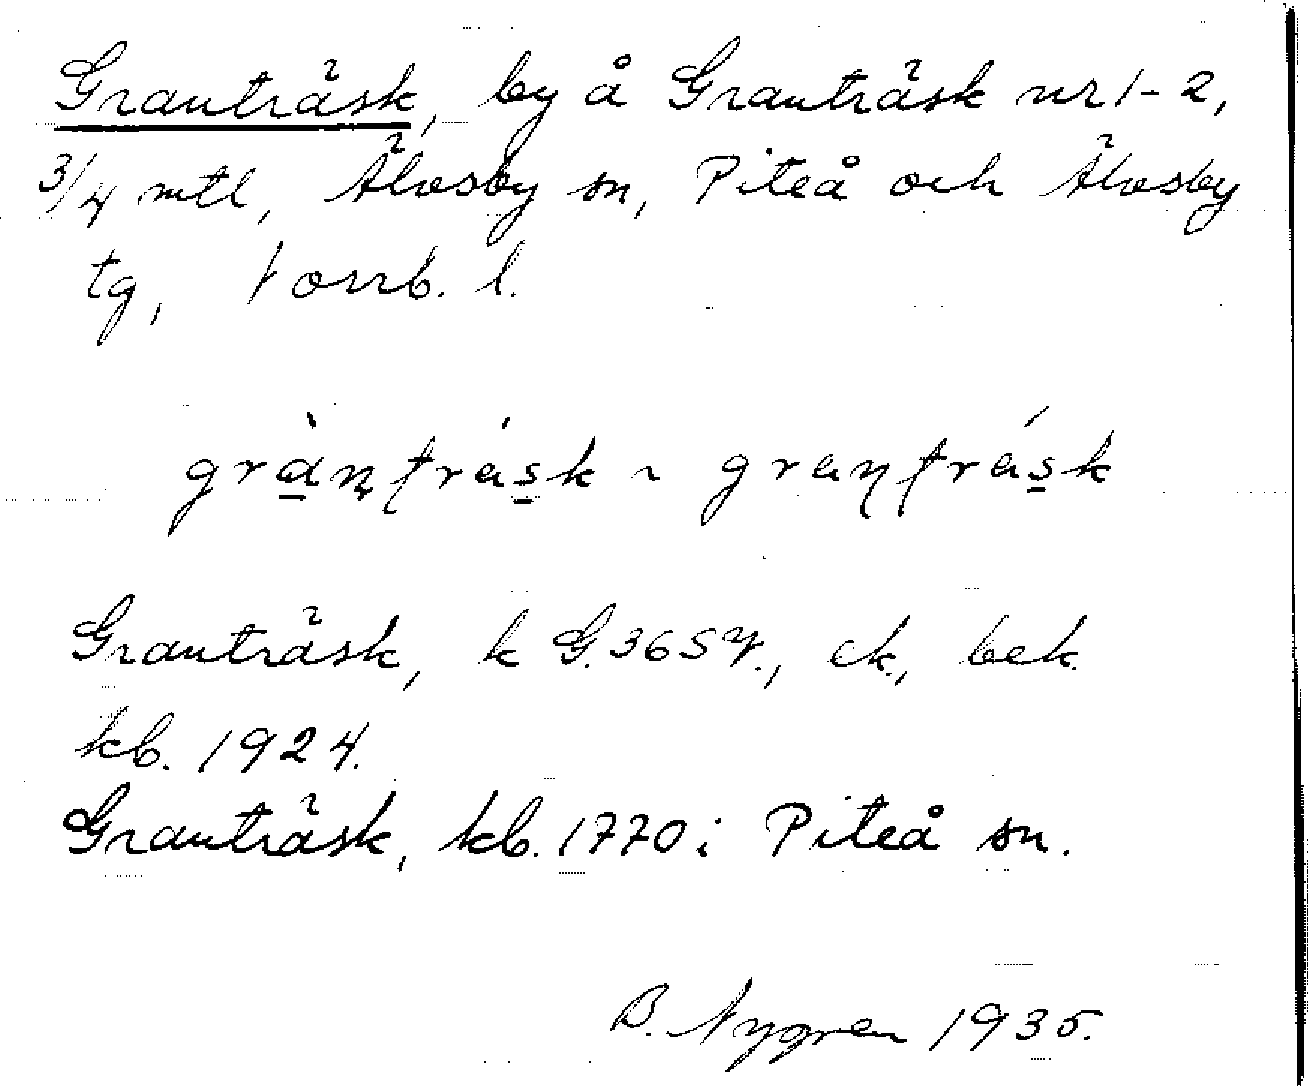 Granträsk, by å Granträsk nr 1-2,
3/4 mtl, Älvsby sn, Piteå och Älvsby
tg, Norrb. l.
grànträsk ~ granträsk
Granträsk, k G. 3657., ek., bek.
kb. 1924.
Granträsk, kb. 1770 i Piteå sn.
B. Nygren 1935.